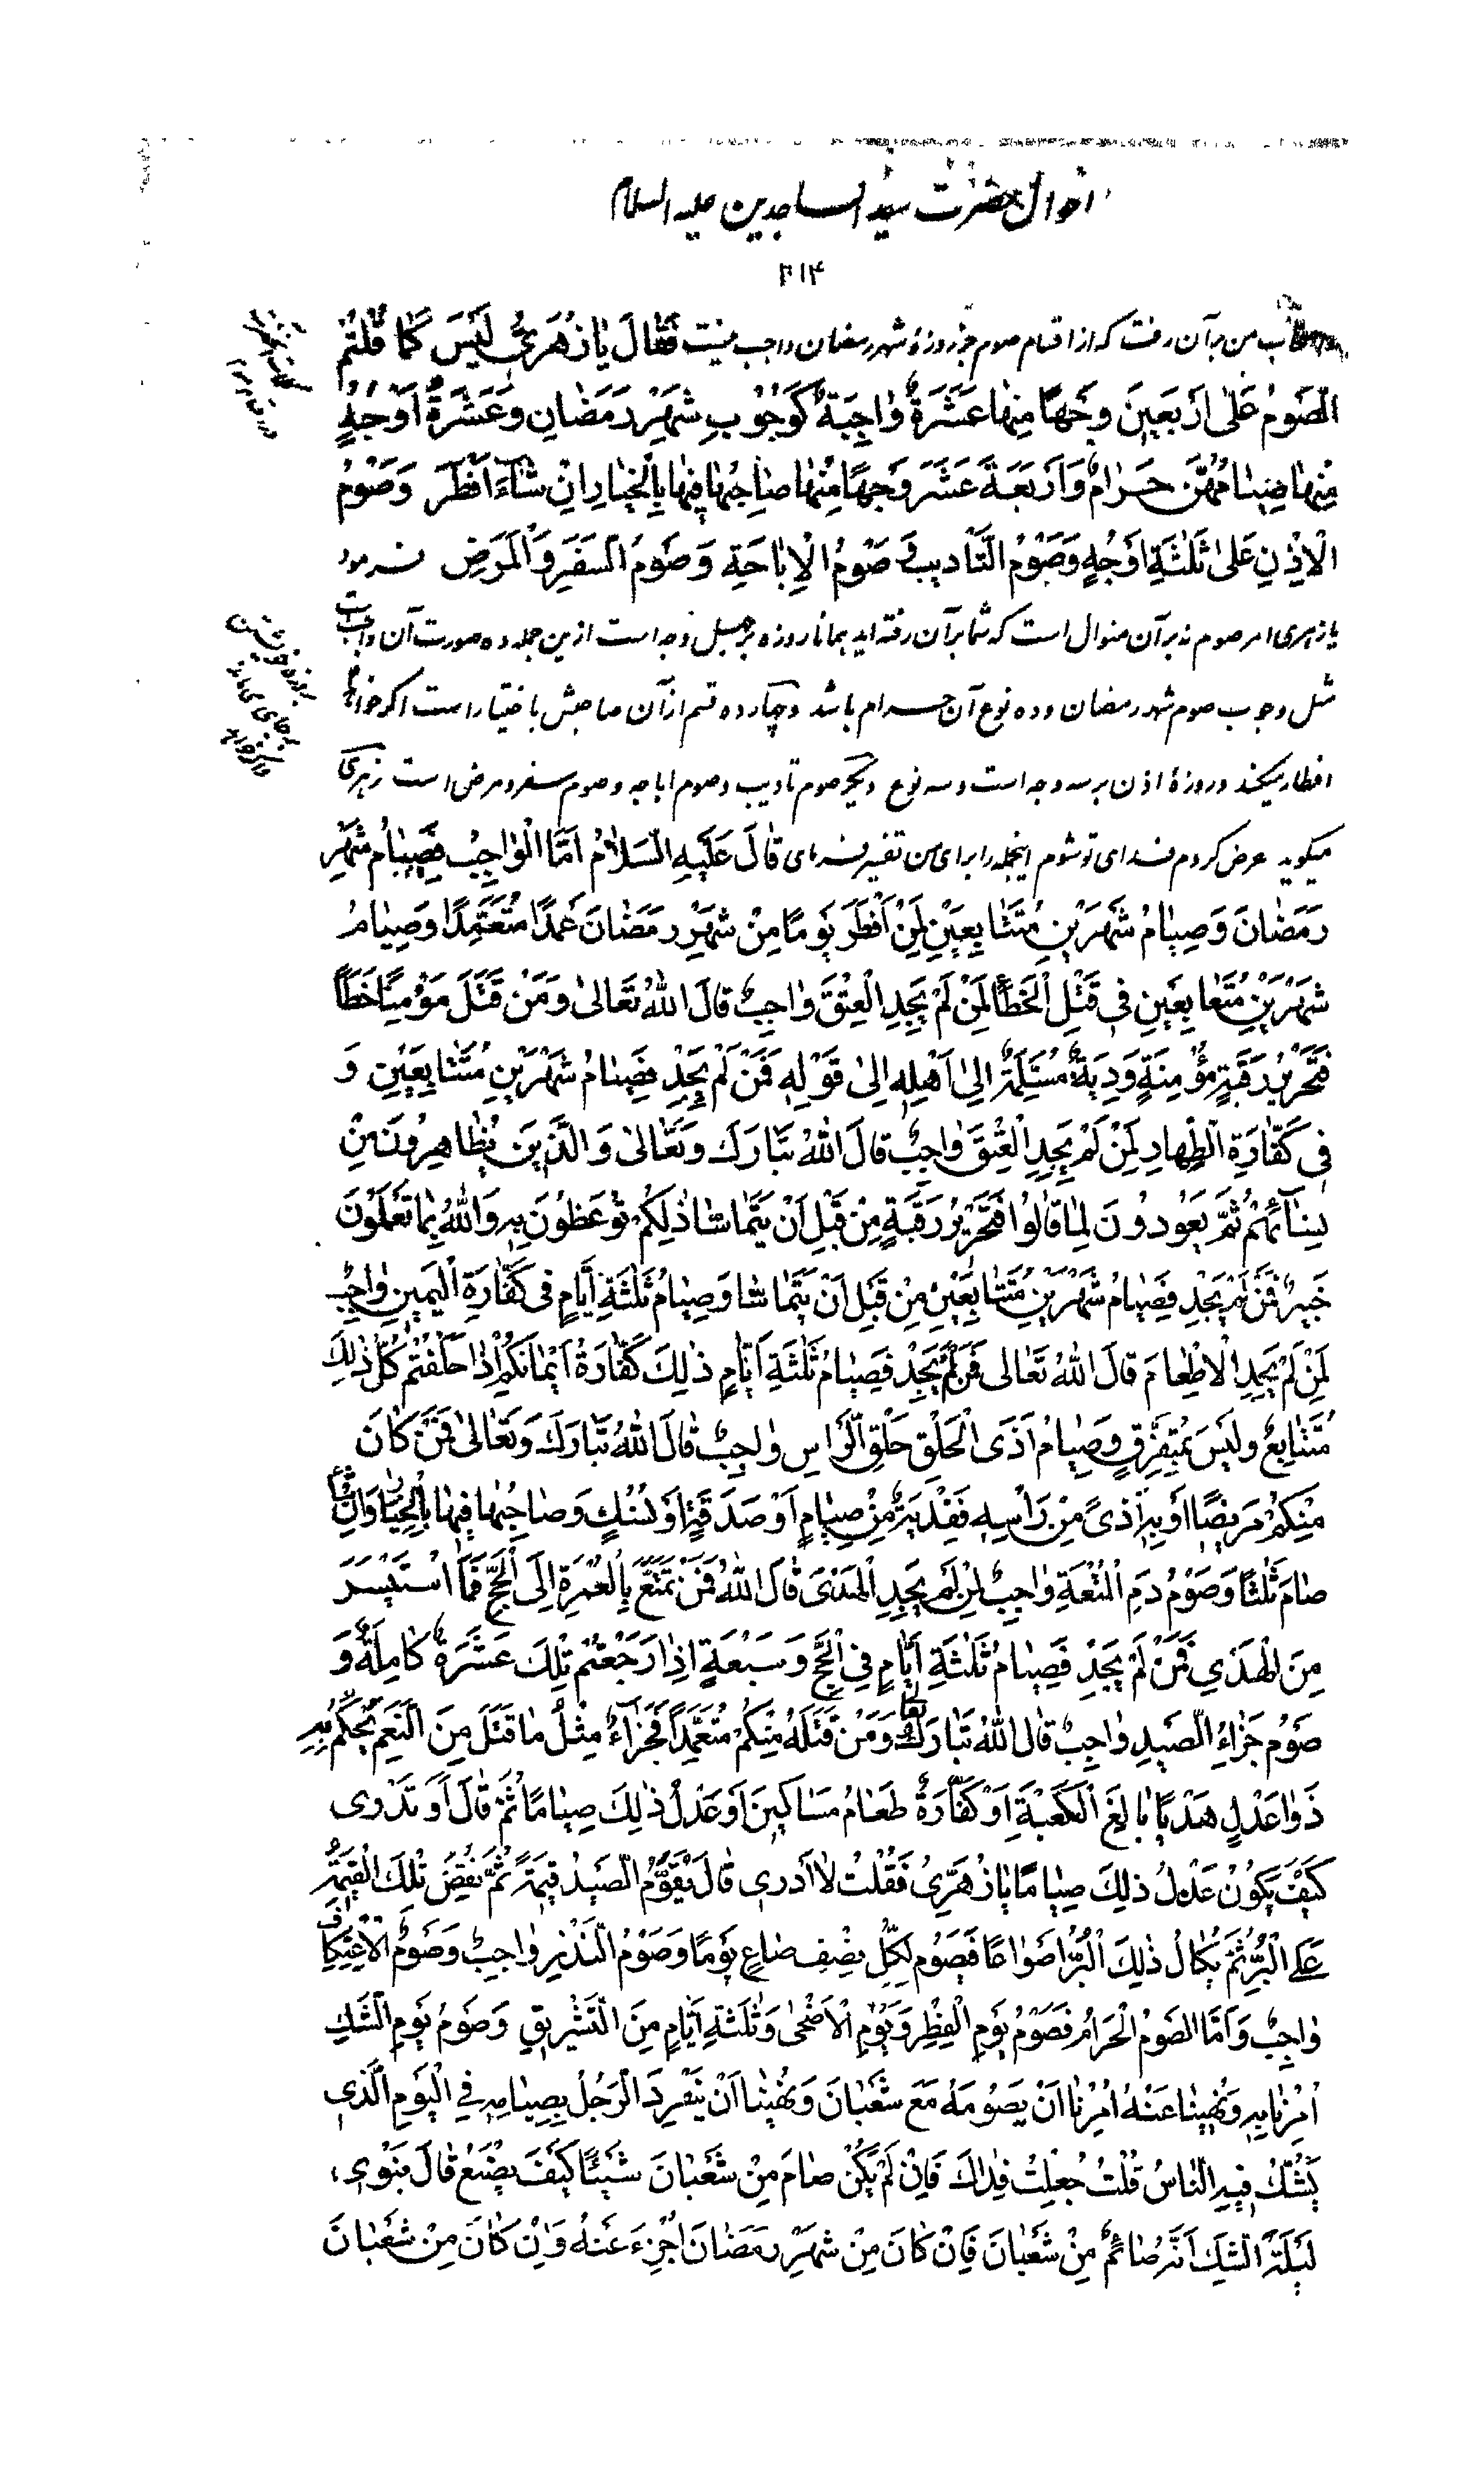 احوال حضرت سید الساجدین علیه السلام
۲۱۴
من برآن رفت که از اقسام صوم جز روزهٔ شهر رمضان واجب نیست فَقالَ یا زُهَرِیُّ لَیْسَ کَما قُلْتُمْ
اَلصَّوْمُ عَلیٰ اَرْبَعینَ وَجْهًا مِنْها عَشَرَةٌ واجِبَةٌ کَوُجُوبِ شَهْرِ رَمَضانِ وَ عَشَرَةُ اَوْجُهٍ
مِنْها صِیامُهُنَّ حَرامٌ وَ اَرْبَعَةَ عَشَرَ وَجْهًا مِنْها صاحِبُها فِیها بِالْخِیارِ اِنْ شآءَ اَفْطَرَ وَ صَوْمُ
الْاِذْنِ عَلیٰ ثَلٰثَةِ اَوْجُهٍ وَ صَوْمُ التَّأدیبِ وَ صَوْمُ الْاِباحَةِ وَ صَوْمُ السَّفَرِ وَ الْمَرَضِ فرمود
یا زهری امر صوم نه برآن منوال است که شما برآن رفته اید همانا روزه بر چهل وجه است ازین جمله ده صورت آن واجب است
مثل وجوب صوم شهر رمضان و ده نوع آن حرام باشد و چهارده قسم از آن صاحبش باختیار است اگر خواهد
افطار میکند و روزهٔ اذن بر سه وجه است و سه نوع دیگر صوم تادیب و صوم اباحه و صوم سفر و مرض است زهری
میگوید عرض کردم فدای تو شوم اینجمله را برای من تفسیر فرمای قالَ عَلَیْهِ السَّلامُ اَمَّا الْواجِبُ فَصِیامُ شَهْرِ
رَمَضانَ وَ صِیامُ شَهْرَیْنِ مُتَتابِعَیْنِ لِمَنْ اَفْطَرَ یَوْمًا مِنْ شَهْرِ رَمَضانَ عَمْدًا مُتَعَمِّدًا وَ صِیامُ
شَهْرَیْنِ مُتَتابِعَیْنِ فی قَتْلِ الْخَطَأِ لِمَنْ لَمْ یَجِدِ الْعِتْقَ واجِبٌ قالَ اللّٰهُ تَعالیٰ وَ مَنْ قَتَلَ مُؤْمِنًا خَطَأً
فَتَحْرِیرُ رَقَبَةٍ مُؤْمِنَةٍ وَ دِیَةٌ مُسَلَّمَةٌ اِلیٰ اَهْلِهِ اِلیٰ قَوْلِهِ فَمَنْ لَمْ یَجِدْ فَصِیامُ شَهْرَیْنِ مُتَتابِعَیْنِ وَ
فی کَفّارَةِ الظِّهارِ لِمَنْ لَمْ یَجِدِ الْعِتْقَ واجِبٌ قالَ اللّٰهُ تَبارَکَ وَ تَعالیٰ وَ الَّذینَ یُظاهِرُونَ مِنْ
نِسآئِهِمْ ثُمَّ یَعُودُونَ لِما قالُوا فَتَحْرِیرُ رَقَبَةٍ مِنْ قَبْلِ اَنْ یَتَمآسّا ذٰلِکُمْ تُوعَظُونَ بِهِ وَ اللّٰهُ بِما تَعْمَلُونَ
خَبیرٌ فَمَنْ لَمْ یَجِدْ فَصِیامُ شَهْرَیْنِ مُتَتابِعَیْنِ مِنْ قَبْلِ اَنْ یَتَمآسّا وَ صِیامُ ثَلٰثَةِ اَیّامٍ فی کَفّارَةِ الْیَمینِ واجِبٌ
لِمَنْ لَمْ یَجِدِ الْاِطْعامَ قالَ اللّٰهُ تَعالی فَمَنْ لَمْ یَجِدْ فَصِیامُ ثَلٰثَةِ اَیّامٍ ذٰلِکَ کَفّارَةُ اَیْمانِکُمْ اِذا حَلَفْتُمْ کُلُّ ذٰلِکَ
مُتَتابِعٌ وَ لَیْسَ بِمُتَفَرِّقٍ وَ صِیامُ اَذَی الْحَلْقِ حَلْقِ الرَّاْسِ واجِبٌ قالَ اللّٰهُ تَبارَکَ وَ تَعالیٰ فَمَنْ کانَ
مِنْکُمْ مَریضًا اَوْ بِهِ اَذیً مِنْ رَاْسِهِ فَفِدْیَةٌ مِنْ صِیامٍ اَوْ صَدَقَةٍ اَوْ نُسُکٍ وَ صاحِبُها فیها بِالْخِیارِ وَ اِنْ شآءَ
صامَ ثَلٰثًا وَ صَوْمُ دَمِ الْمُتْعَةِ واجِبٌ لِمَنْ لَمْ یَجِدِ الْهَدْیَ قالَ اللّٰهُ فَمَنْ تَمَتَّعَ بِالْعُمْرَةِ اِلَی الْحَجِّ فَمَا اسْتَیْسَرَ
مِنَ الْهَدْیِ فَمَنْ لَمْ یَجِدْ فَصِیامُ ثَلٰثَةِ اَیّامٍ فِی الْحَجِّ وَ سَبْعَةٍ اِذا رَجَعْتُمْ تِلْکَ عَشَرَةٌ کامِلَةٌ وَ
صَوْمُ جَزاءِ الصَّیْدِ واجِبٌ قالَ اللّٰهُ تَبارَکَ وَ تَعالی وَ مَنْ قَتَلَهُ مِنْکُمْ مُتَعَمِّدًا فَجَزآءٌ مِثْلُ ما قَتَلَ مِنَ النَّعَمِ یَحْکُمُ بِهِ
ذَوا عَدْلٍ هَدْیًا بالِغَ الْکَعْبَةِ اَوْ کَفّارَةٌ طَعامُ مَساکینَ اَوْ عَدْلُ ذٰلِکَ صِیامًا ثُمَّ قالَ اَوَ تَدْری
کَیْفَ یَکُونُ عَدْلُ ذٰلِکَ صِیامًا یا زُهَرِیُّ فَقُلْتُ لا اَدْری قالَ یُقَوَّمُ الصَّیْدُ قیمَةً ثُمَّ تُفَضُّ تِلْکَ الْقیمَةُ
عَلَی الْبُرِّ ثُمَّ یُکالُ ذٰلِکَ الْبُرُّ اَصْواعًا فَیَصُومُ لِکُلِّ نِصْفِ صاعٍ یَوْمًا وَ صَوْمُ النَّذْرِ واجِبٌ وَ صَوْمُ الْاِعْتِکافِ
واجِبٌ وَ اَمَّا الصَّوْمُ الْحَرامُ فَصَوْمُ یَوْمِ الْفِطْرِ وَ یَوْمِ الْاَضْحیٰ وَ ثَلٰثَةِ اَیّامٍ مِنَ التَّشْریقِ وَ صَوْمُ یَوْمِ الشَّکِّ
اُمِرْنا بِهِ وَ نُهینا عَنْهُ اُمِرْنا اَنْ یَصُومَهُ مَعَ شَعْبانَ وَ نُهینا اَنْ یَنْفَرِدَ الرَّجُلُ بِصِیامِهِ فِی الْیَوْمِ الَّذی
یَشُکُّ فیهِ النّاسُ قُلْتُ جُعِلْتُ فِداکَ فَاِنْ لَمْ یَکُنْ صامَ مِنْ شَعْبانَ شَیْئًا کَیْفَ یَصْنَعُ قالَ یَنْوی
لَیْلَةَ الشَّکِّ اَنَّهُ صائِمٌ مِنْ شَعْبانَ فَاِنْ کانَ مِنْ شَهْرِ رَمَضانَ اَجْزَءَ عَنْهُ وَ اِنْ کانَ مِنْ شَعْبانَ